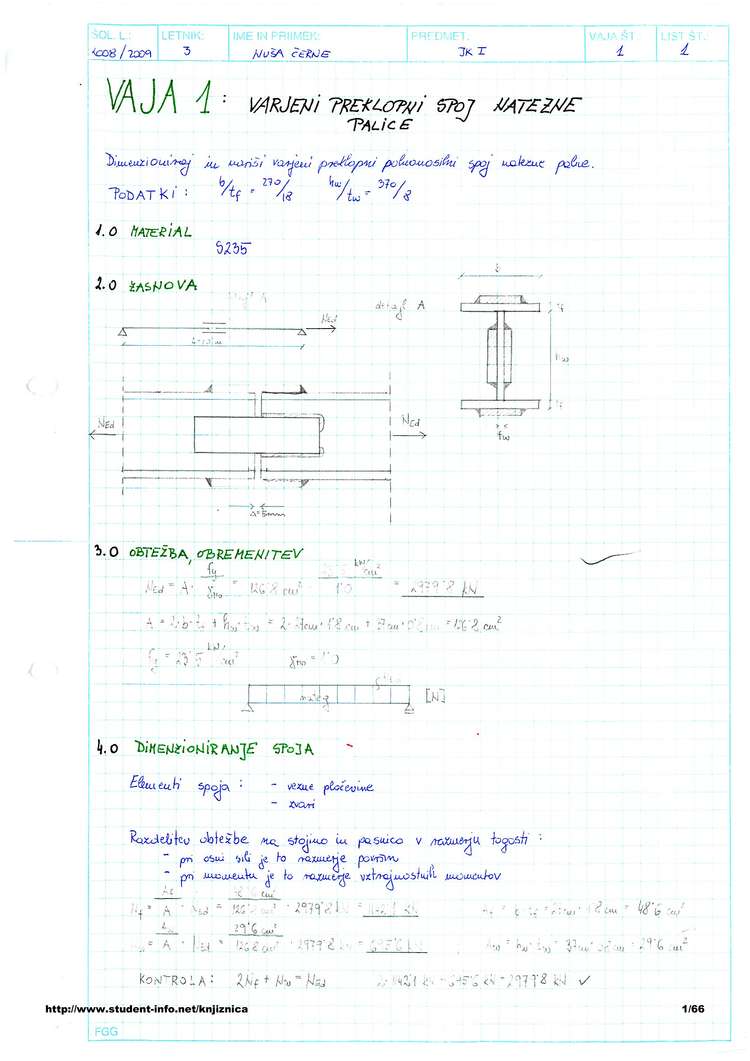 ŠOL. L.: LETNIK: IME IN PRIIMEK: PREDMET: VAJA ŠT. LIST ŠT.
2008/2009 3 NUŠA ČERNE JK I 1 1
VAJA 1: VARJENI PREKLOPNI SPOJ NATEZNE
PALICE
Dimenzioniraj in nariši varjeni preklopni polnonosilni spoj natezne palice.
PODATKI: b/tf = 270/18 hw/tw = 370/8
1.0 MATERIAL
S235
2.0 ZASNOVA
detajl A
b
NEd
tf
hw
tf
NEd NEd
tw
Δ=5mm
3.0 OBTEŽBA, OBREMENITEV
NEd = A · fy/γM0 = 126'8 cm² · kN/cm² 1'0 = 2979'8 kN
A = 2·b·tf + hw·tw = 2·27cm·1'8cm + 37cm·0'8cm = 126'8 cm²
fy = 23'5 kN/cm² γM0 = 1'0
nateg [N]
4.0 DIMENZIONIRANJE SPOJA
Elementi spoja: - vezne pločevine
- zvari
Razdelitev obtežbe na stojino in pasnico v razmerju togosti:
- pri osni sili je to razmerje površin
- pri momentu je to razmerje vztrajnostnih momentov
Nf = Af/A · NEd = 48'6 cm²/126'8 cm² · 2979'8 kN = 1142'1 kN Af = b·tf = 27cm·1'8cm = 48'6 cm²
Nw = Aw/A · NEd = 29'6 cm²/126'8 cm² · 2979'8 kN = 695'6 kN Aw = hw·tw = 37cm·0'8cm = 29'6 cm²
KONTROLA: 2Nf + Nw = NEd 2·1142'1 kN + 695'6 kN = 2979'8 kN ✓
http://www.student-info.net/knjiznica 1/66
FGG